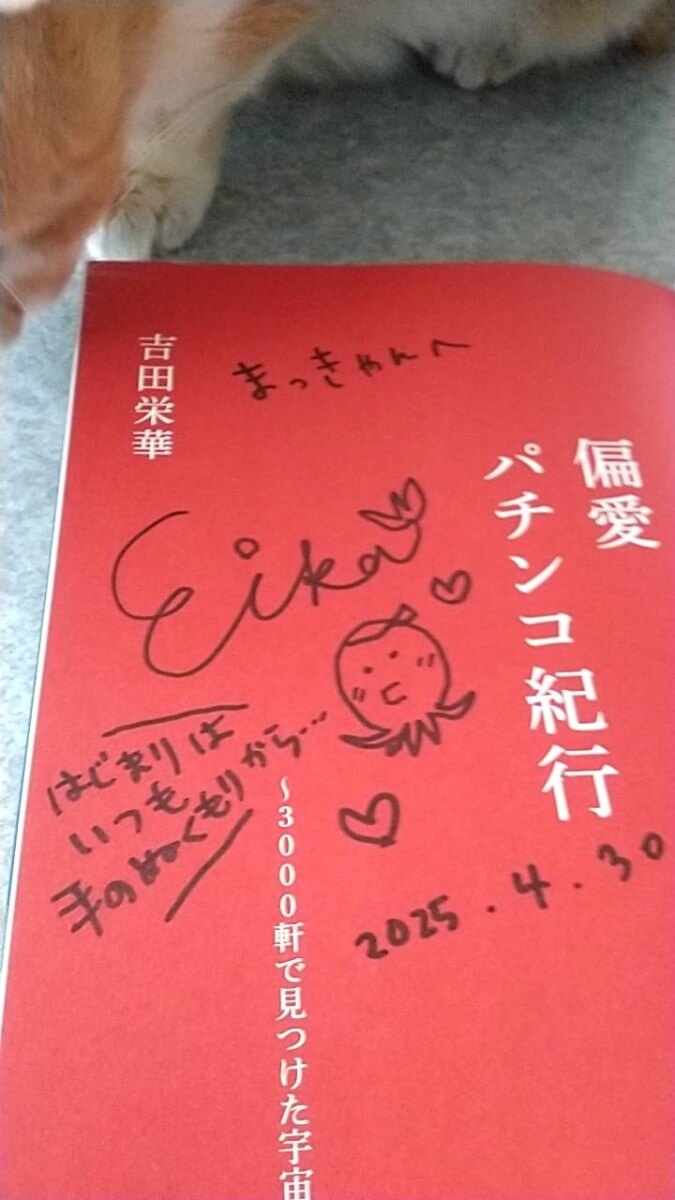 偏愛
パチンコ紀行
~3000軒で見つけた宇宙
吉田栄華
まっきゃんへ
Eika
はじまりは
いつも
手のぬくもりから…
2025.4.30